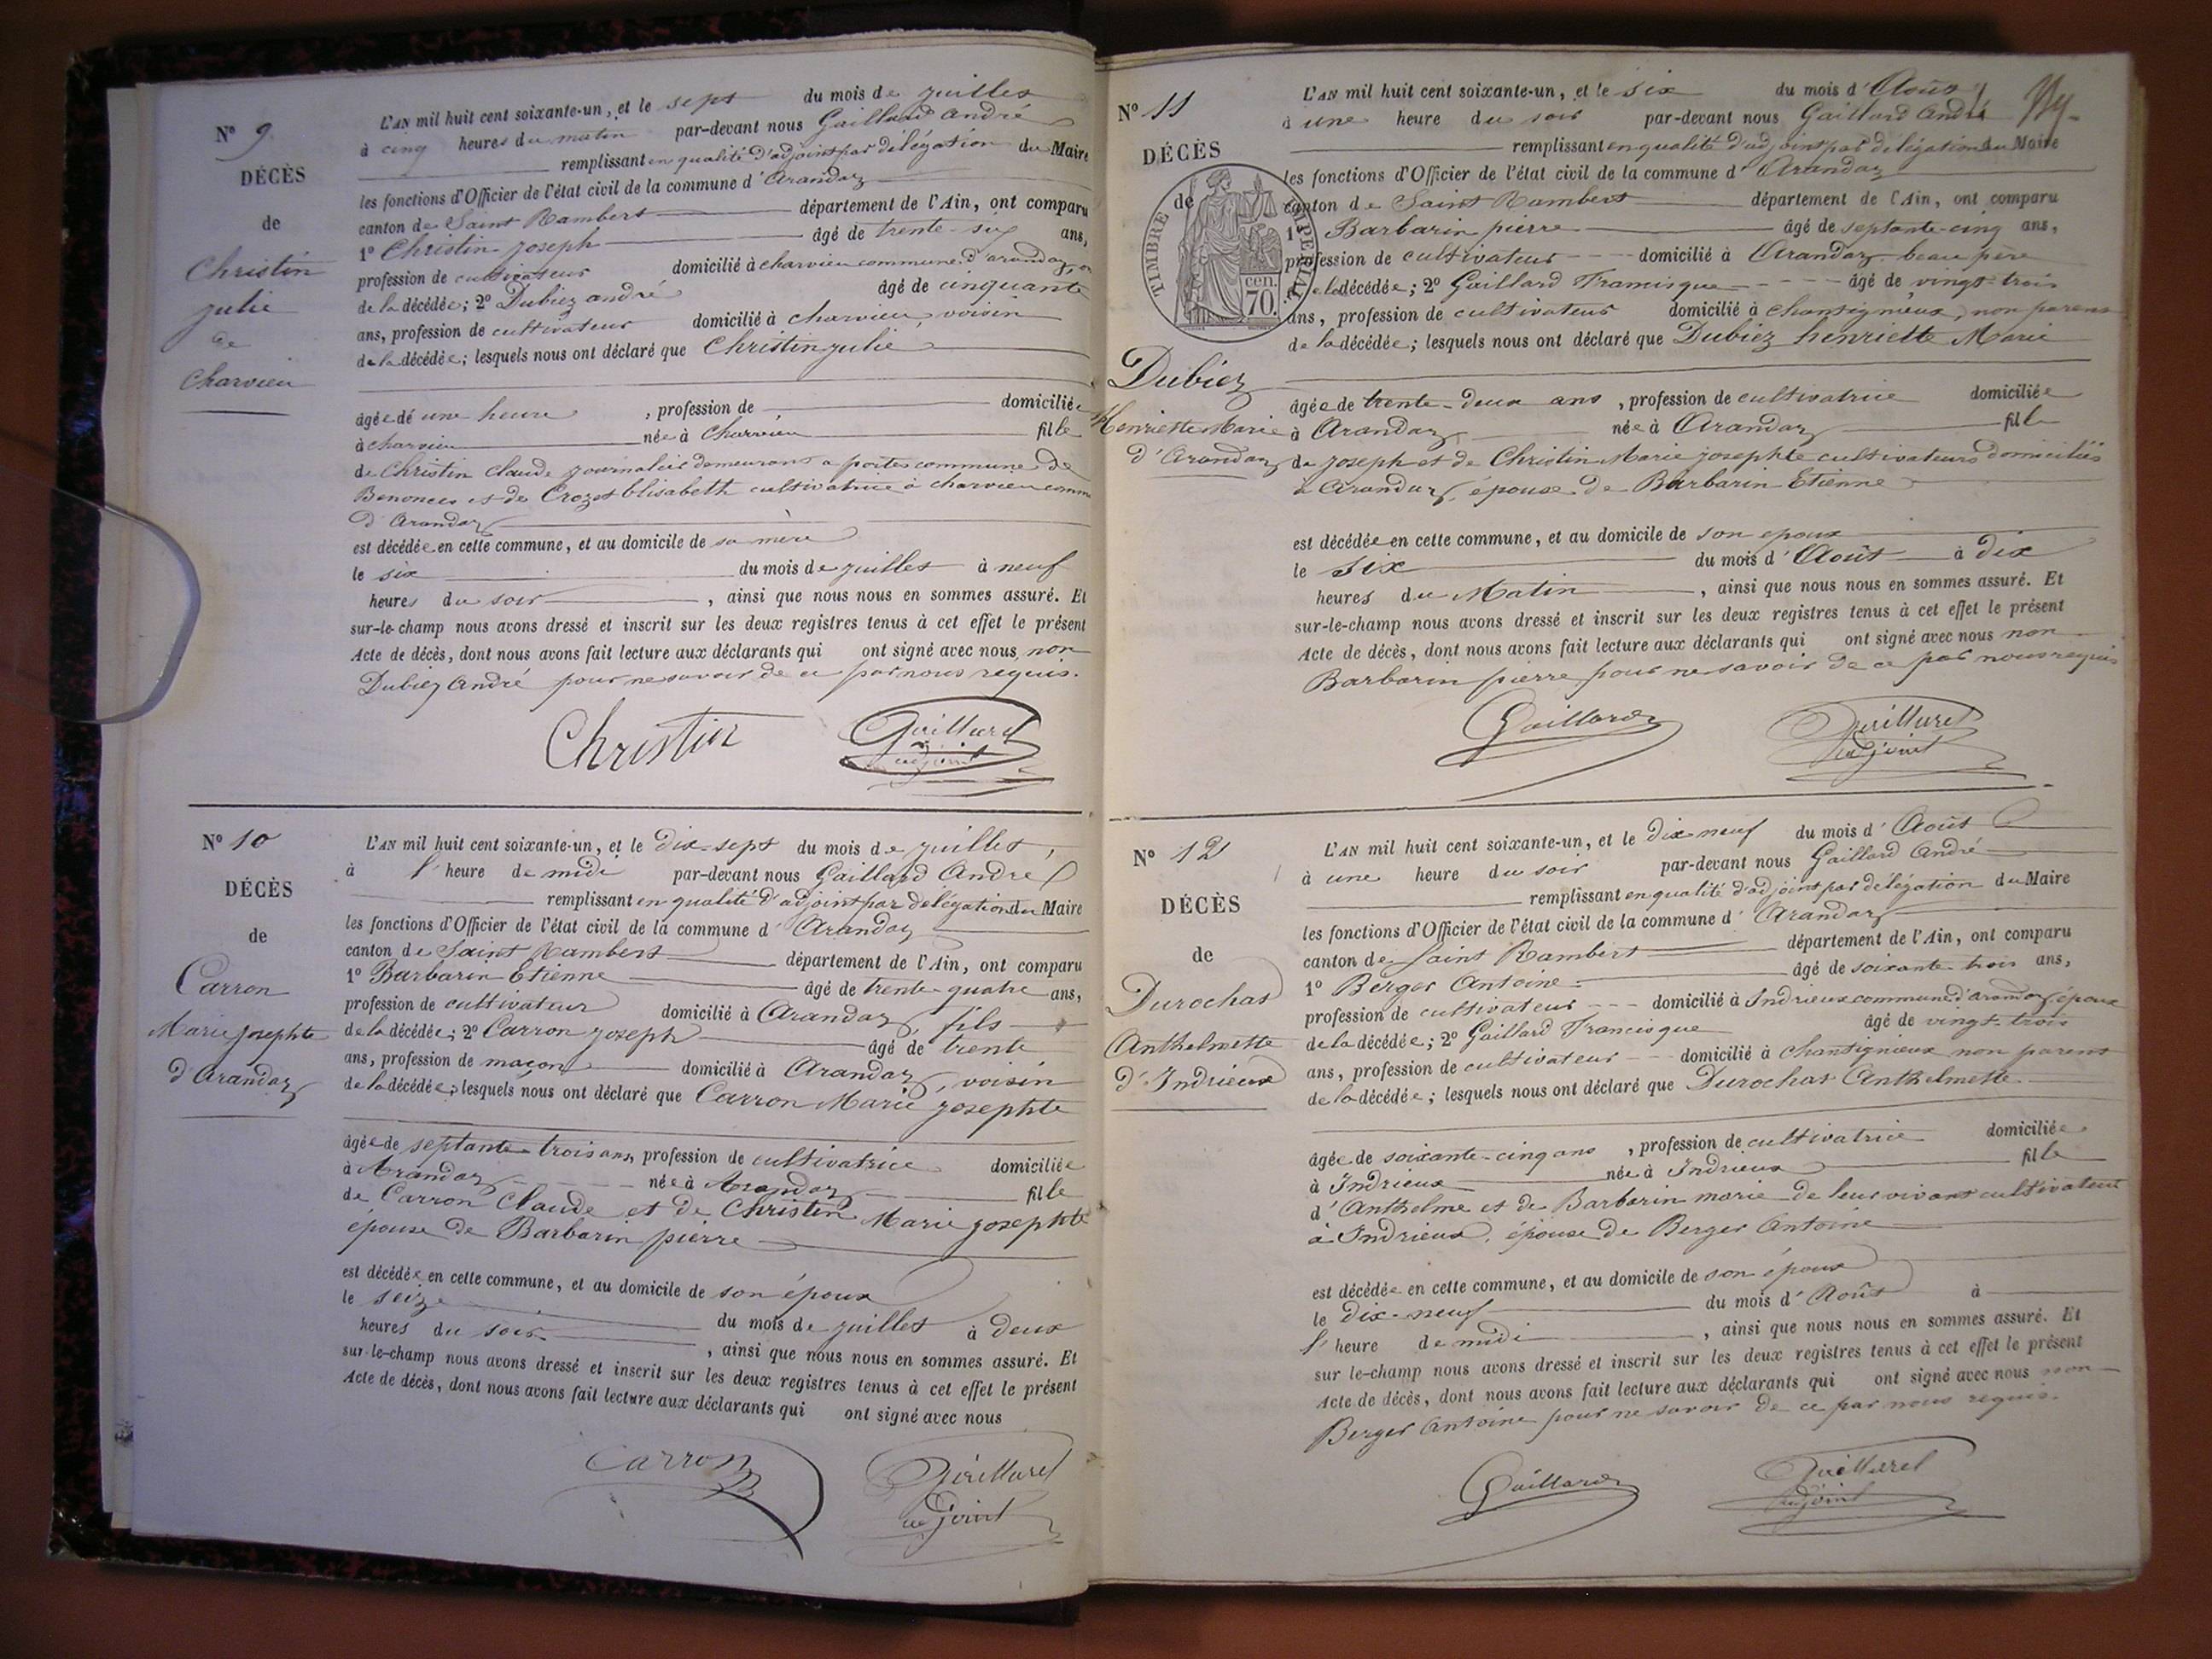 N° 9
DÉCÈS
de
Christin
julie
de
Charvieu
L'AN mil huit cent soixante-un, et le sept du mois de juillet
à cinq heures du matin par-devant nous Gaillard André
remplissant en qualité d'adjoint par délégation du Maire
les fonctions d'Officier de l'état civil de la commune d'Arandaz
canton de Saint Rambert département de l'Ain, ont comparu
1° Christin joseph âgé de trente-six ans,
profession de cultivateur domicilié à charvieu commune d'arandaz,
de la décédée; 2° Dubiez andré âgé de cinquante
ans, profession de cultivateur domicilié à charvieu, voisin
de la décédée; lesquels nous ont déclaré que Christin julie
âgée de une heure, profession de domiciliée
à charvieu née à Charvieu fille
de Christin Claude journalier demeurant a portes commune de
Benonces et de Crozet Elisabeth cultivatrice à charvieu comm
d'Arandaz
est décédée en cette commune, et au domicile de sa mère
le six du mois de juillet à neuf
heures du soir, ainsi que nous nous en sommes assuré. Et
sur-le-champ nous avons dressé et inscrit sur les deux registres tenus à cet effet le présent
Acte de décès, dont nous avons fait lecture aux déclarants qui ont signé avec nous, non
Dubiez André pour ne savoir de ce par nous requis.
Christin Gaillard
adjoint
N° 10
DÉCÈS
de
Carron
Marie josephte
d'Arandaz
L'AN mil huit cent soixante-un, et le dix-sept du mois de juillet,
à l'heure de midi par-devant nous Gaillard André
remplissant en qualité d'adjoint par délégation du Maire
les fonctions d'Officier de l'état civil de la commune d'Arandaz
canton de Saint Rambert département de l'Ain, ont comparu
1° Barbarin Etienne âgé de trente-quatre ans,
profession de cultivateur domicilié à Arandaz, fils
de la décédée; 2° Carron joseph âgé de trente
ans, profession de maçon domicilié à Arandaz, voisin
de la décédée; lesquels nous ont déclaré que Carron Marie josephte
âgée de septante-trois ans, profession de cultivatrice domiciliée
à Arandaz née à Arandaz fille
de Carron Claude et de Christin Marie josephte
épouse de Barbarin pierre
est décédée en cette commune, et au domicile de son époux
le seize du mois de juillet à deux
heures du soir, ainsi que nous nous en sommes assuré. Et
sur-le-champ nous avons dressé et inscrit sur les deux registres tenus à cet effet le présent
Acte de décès, dont nous avons fait lecture aux déclarants qui ont signé avec nous
Carron Gaillard
adjoint
N° 11
DÉCÈS
de
TIMBRE IMPERIAL
cen.
70.
Dubiez
Henriette Marie
d'Arandaz
L'AN mil huit cent soixante-un, et le six du mois d'Août
à une heure du soir par-devant nous Gaillard André
remplissant en qualité d'adjoint par délégation du Maire
les fonctions d'Officier de l'état civil de la commune d'Arandaz
canton de Saint Rambert département de l'Ain, ont comparu
1° Barbarin pierre âgé de septante-cinq ans,
profession de cultivateur domicilié à Arandaz beau père
de la décédée; 2° Gaillard Francisque âgé de vingt-trois
ans, profession de cultivateur domicilié à chantignieux, non parent
de la décédée; lesquels nous ont déclaré que Dubiez henriette Marie
âgée de trente-deux ans, profession de cultivatrice domiciliée
à Arandaz née à Arandaz fille
de joseph et de Christin Marie josephte cultivateurs domiciliés
à Arandaz, épouse de Barbarin Etienne
est décédée en cette commune, et au domicile de son epoux
le six du mois d'Août à dix
heures du Matin, ainsi que nous nous en sommes assuré. Et
sur-le-champ nous avons dressé et inscrit sur les deux registres tenus à cet effet le présent
Acte de décès, dont nous avons fait lecture aux déclarants qui ont signé avec nous non
Barbarin pierre pour ne savoir de ce par nous requis
Gaillard Gaillard
adjoint
N° 12
DÉCÈS
de
Durochat
Anthelmette
d'Indrieux
L'AN mil huit cent soixante-un, et le dix-neuf du mois d'Août
à une heure du soir par-devant nous Gaillard André
remplissant en qualité d'adjoint par délégation du Maire
les fonctions d'Officier de l'état civil de la commune d'Arandaz
canton de Saint Rambert département de l'Ain, ont comparu
1° Berger Antoine âgé de soixante-trois ans,
profession de cultivateur domicilié à Indrieux commune d'arandaz, époux
de la décédée; 2° Gaillard Francisque âgé de vingt-trois
ans, profession de cultivateur domicilié à chantignieux non parent
de la décédée; lesquels nous ont déclaré que Durochat Anthelmette
âgée de soixante-cinq ans, profession de cultivatrice domiciliée
à Indrieux née à Indrieux fille
d'Anthelme et de Barbarin marie de leur vivant cultivateurs
à Indrieux, épouse de Berger Antoine
est décédée en cette commune, et au domicile de son époux
le dix-neuf du mois d'Août à
l'heure de midi, ainsi que nous nous en sommes assuré. Et
sur le-champ nous avons dressé et inscrit sur les deux registres tenus à cet effet le présent
Acte de décès, dont nous avons fait lecture aux déclarants qui ont signé avec nous non
Berger Antoine pour ne savoir de ce par nous requis.
Gaillard Gaillard
adjoint